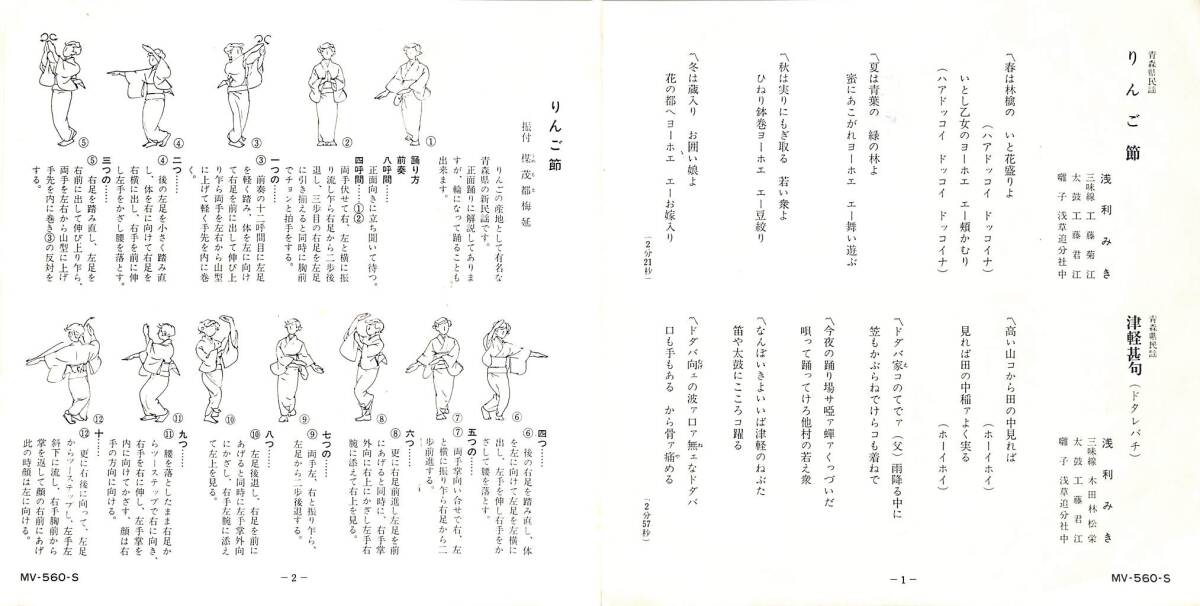 青森県民謡
りんご節
浅利みき
三味線 工藤菊江
太鼓 工藤君江
囃子 浅草追分社中
〽春は林檎の いと花盛りよ
(ハアドッコイ ドッコイ ドッコイナ)
いとし乙女のヨーホエ エー頬かむり
(ハアドッコイ ドッコイ ドッコイナ)
〽夏は青葉の 緑の林よ
蜜にあこがれヨーホエ エー舞い遊ぶ
〽秋は実りにもぎ取る 若い衆よ
ひねり鉢巻ヨーホエ エー豆絞り
〽冬は蔵入り お囲い娘よ
花の都へヨーホエ エーお嫁入り
〔2分21秒〕
青森県民謡
津軽甚句(ドタレバチ)
浅利みき
三味線 木田林松栄
太鼓 工藤君江
囃子 浅草追分社中
〽高い山コから田の中見れば
(ホーイホイ)
見れば田の中稲ァよく実る
(ホーイホイ)
〽ドダバ家コのてでァ(父)雨降る中に
笠もかぶらねでけらコも着ねで
〽今夜の踊り場サ啞ァ蟬ァくっついだ
唄って踊ってけろ他村の若え衆
〽なんぼいきよいいば津軽のねぶた
笛や太鼓にこころコ躍る
〽ドダバ向ェの波ァロァ無ェなドダバ
口も手もある から骨ァ痛める
〔2分57秒〕
－1－
MV-560-S
りんご節
振付 楳茂都梅延
踊り方
りんごの産地として有名な
青森県の新民謡です。
正面踊りに解説してありま
すが、輪になって踊ることも
出来ます。
前奏
八呼間……
正面向きに立ち聞いて待つ。
四呼間……①②
両手伏せて右、左と横に振
り流し乍ら右足から二歩後
退し、三歩目の右足を左足
に引き揃えると同時に胸前
でチョンと拍手をする。
一つの……
③ 前奏の十二呼間目に左足
を軽く踏み、体を左に向け
て右足を前に出して伸び上
り乍ら両手を左右から山型
に上げて軽く手先を内に巻
く。
二つ……
④ 後の左足を小さく踏み直
し、体を右に向けて右足を
右横に出し、右手を前に伸
し左手をかざし腰を落とす。
三つの……
⑤ 右足を踏み直し、左足を
右前に出して伸び上り乍ら、
両手を左右から山型に上げ
手先を内に巻き③の反対を
する。
① ② ③ ④ ⑤
四つ……
⑥ 後の右足を踏み直し、体
を左に向けて左足を左横に
出し、左手を伸し右手をか
ざして腰を落とす。
五つの……
⑦ 両手掌向い合せで右、左
と横に振り乍ら右足から二
歩前進する。
六つ……
⑧ 更に右足前進し左足を前
にあげると同時に、右手掌
外向に右上にかざし左手右
腕に添えて右上を見る。
七つの……
⑨ 両手左、右と振り乍ら、
左足から二歩後退する。
八つ……
⑩ 左足後退し、右足を前に
あげると同時に左手掌外向
にかざし、右手左腕に添え
て左上を見る。
九つ……
⑪ 腰を落としたまま右足か
らツーステップで右に向き、
右手を右に伸し、左手掌を
内に向けてかざす、顔は右
手の方向に向ける。
十……
⑫ 更に右後に向って、左足
からツーステップし、左手左
斜下に流し、右手胸前から
掌を返して顔の右前にあげ
此の時顔は左に向ける。
⑥ ⑦ ⑧ ⑨ ⑩ ⑪ ⑫
－2－
MV-560-S